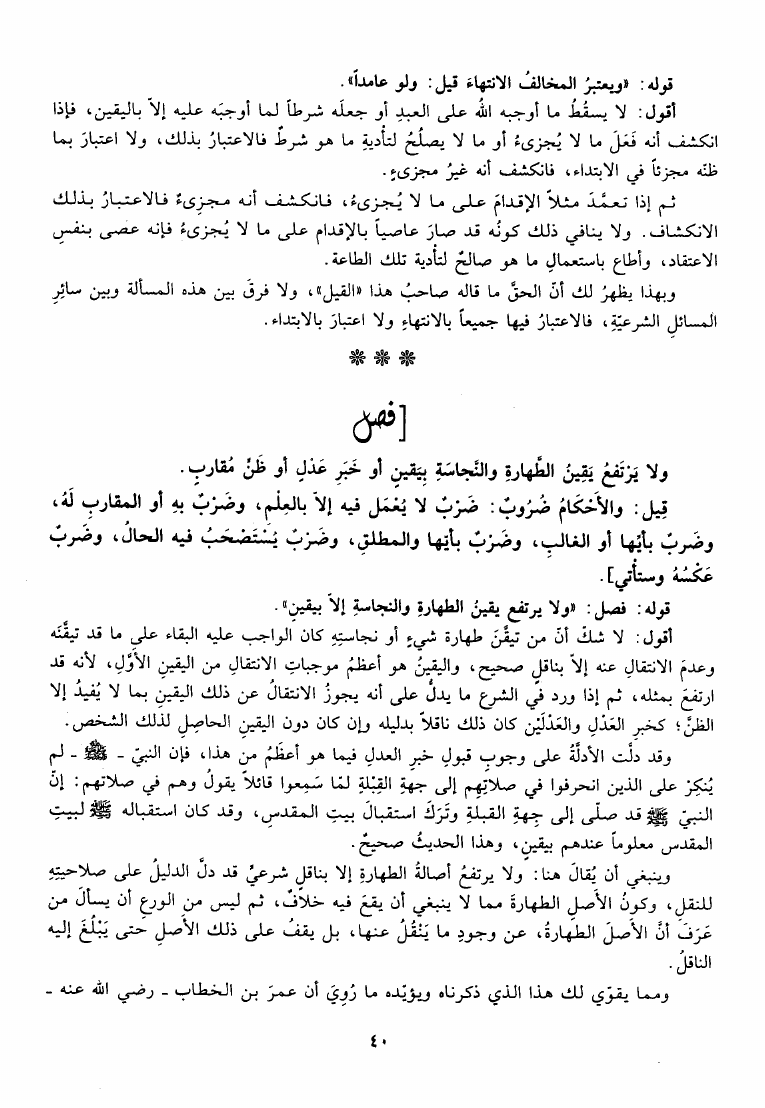 قوله: «ويعتبرُ المخالفُ الانتهاءَ قيل: ولو عامداً».
أقول: لا يسقُطُ ما أوجبه اللّٰه على العبدِ أو جعلَه شرطاً لما أوجبَه عليه إلاّ باليقين، فإذا
انكشف أنه فَعَلَ ما لا يُجزىءُ أو ما لا يصلُحُ لتأديةِ ما هو شرطٌ فالاعتبارُ بذلك، ولا اعتبارَ بما
ظنّه مجزئاً في الابتداء، فانكشف أنه غيرُ مجزىءٍ.
ثم إذا تعمَّدَ مثلاً الإقدامَ على ما لا يُجزىءُ، فانكشف أنه مجزِىءٌ فالاعتبارُ بذلك
الانكشاف. ولا ينافي ذلك كونُه قد صارَ عاصياً بالإقدام على ما لا يُجزىءُ فإنه عصى بنفسِ
الاعتقاد، وأطاع باستعمالِ ما هو صالحٌ لتأدية تلك الطاعة.
وبهذا يظهرُ لك أنّ الحقَّ ما قاله صاحبُ هذا «القيل»، ولا فرقَ بين هذه المسألة وبين سائِرِ
المسائلِ الشرعيّةِ، فالاعتبارُ فيها جميعاً بالانتهاءِ ولا اعتبارَ بالابتداء.
❊ ❊ ❊
[فصل
ولا يَرْتَفعُ يَقِينُ الطَّهارةِ والنَّجاسَةِ بِيَقينٍ أو خَبَرِ عَدْلٍ أو ظَنٍّ مُقاربٍ.
قِيل: والأَحْكامُ ضُرُوبٌ: ضَرْبٌ لا يُعْمَل فيه إلاَّ بالعِلْمِ، وضَرْبٌ بهِ أو المقاربِ لَهُ،
وضَربٌ بأيِّها أو الغالبِ، وضَرْبٌ بأيِّها والمطلقِ، وضَرْبٌ يُسْتَصْحَبُ فيه الحالُ، وضَربٌ
عَكْسُهُ وستأتي].
قوله: فصل: «ولا يرتفع يقينُ الطهارةِ والنجاسةِ إلاّ بيقينٍ».
أقول: لا شكَّ أنّ من تيقَّنَ طهارة شيءٍ أو نجاستِهِ كان الواجب عليه البقاء على ما قد تيقَّنَه
وعدمَ الانتقال عنه إلاّ بناقلٍ صحيح، واليقينُ هو أعظمُ موجباتِ الانتقال من اليقينِ الأوَّلِ، لأنه قد
ارتفعَ بمثله، ثم إذا ورد في الشرع ما يدلُّ على أنه يجوزُ الانتقالُ عن ذلك اليقينِ بما لا يُفيدُ إلا
الظنَّ؛ كخبرِ العَدْلِ والعَدْلَيْن كان ذلك ناقلاً بدليله وإن كان دون اليقينِ الحاصِلِ لذلك الشخص.
وقد دلّت الأدلَّةُ على وجوبِ قبولِ خبرِ العدلِ فيما هو أعظَمُ من هذا، فإن النبيّ ـ ﷺ ـ لم
يُنكِرْ على الذين انحرفوا في صلاتِهم إلى جهةِ القِبْلةِ لمّا سَمِعوا قائلاً يقولُ وهم في صلاتهم: إنّ
النبيّ ﷺ قد صلّى إلى جِهةِ القبلةِ وتَرَكَ استقبالَ بيتِ المقدسِ، وقد كان استقباله ﷺ لبيتِ
المقدس معلوماً عندهم بيقينٍ، وهذا الحديثُ صحيحٌ.
وينبغي أن يُقالَ هنا: ولا يرتفعُ أصالةُ الطهارةِ إلا بناقلٍ شرعيٍّ قد دلَّ الدليلُ على صلاحيتِهِ
للنقلِ، وكونُ الأصلِ الطهارةَ مما لا ينبغي أن يقعَ فيه خلافٌ، ثم ليس من الورع أن يسألَ من
عَرَفَ أنَّ الأصلَ الطهارةُ، عن وجودِ ما يَنْقُلُ عنها، بل يقفُ على ذلك الأصلِ حتى يَبْلُغَ إليه
الناقلُ.
ومما يقوّي لك هذا الذي ذكرناه ويؤيّده ما رُوِيَ أن عمرَ بن الخطاب ـ رضي اللّٰه عنه ـ
٤٠